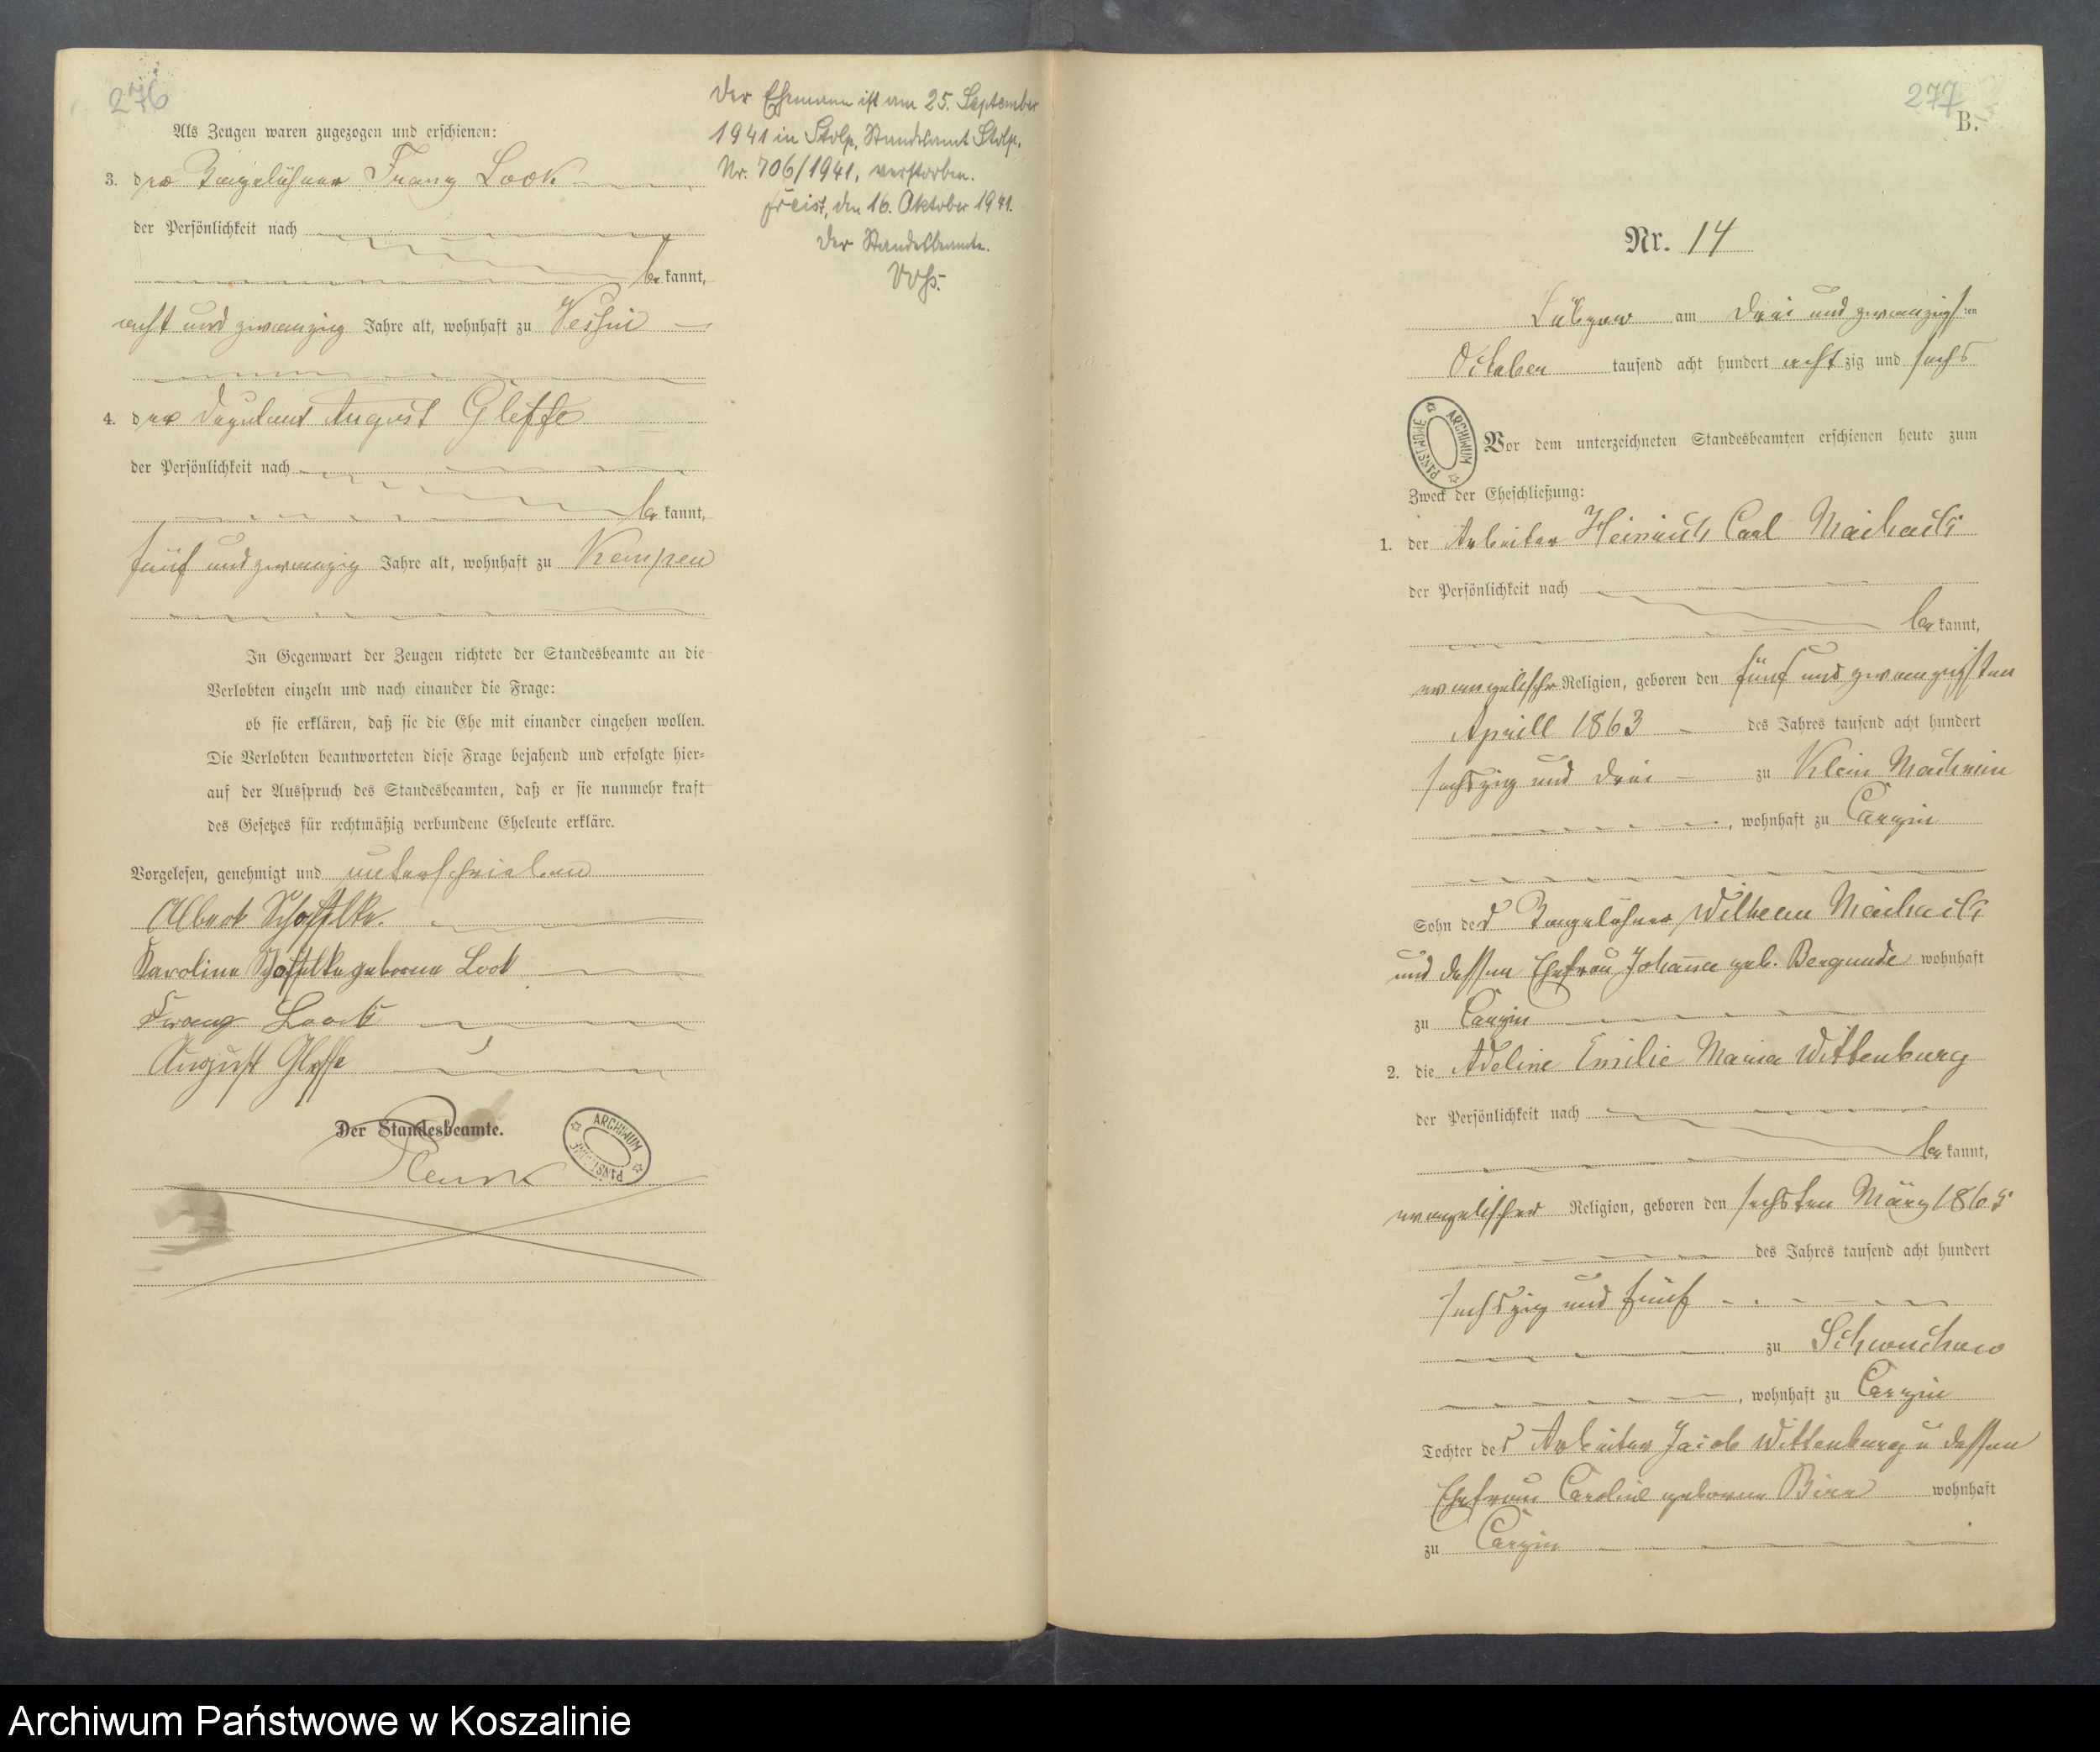 276
Als Zeugen waren zugezogen und erschienen:
3. der Tagelöhner Franz Look
der Persönlichkeit nach
be kannt,
acht und zwanzig Jahre alt, wohnhaft zu Vessin
4. der August Gleffe
der Persönlichkeit nach
be kannt,
fünf und zwanzig Jahre alt, wohnhaft zu Kempen
In Gegenwart der Zeugen richtete der Standesbeamte an die
Verlobten einzeln und nach einander die Frage:
ob sie erklären, daß sie die Ehe mit einander eingehen wollen.
Die Verlobten beantworteten diese Frage bejahend und erfolgte hier-
auf der Ausspruch des Standesbeamten, daß er sie nunmehr kraft
des Gesetzes für rechtmäßig verbundene Eheleute erkläre.
Vorgelesen, genehmigt und unterschrieben
Albert
Karoline geborne Look
Franz Look
August Gleffe
Der Standesbeamte.
ARCHIWUM PAŃSTWOWE
Der Ehemann ist am 25. September
1941 in Stolp, Standesamt Stolp,
Nr. 706/1941, verstorben.
Freist, den 16. Oktober 1941.
Der Standesbeamte.
277
B.
Nr. 14
Lübzow am drei und zwanzigsten
October tausend acht hundert achtzig und sechs
ARCHIWUM PAŃSTWOWE
Vor dem unterzeichneten Standesbeamten erschienen heute zum
Zweck der Eheschließung:
1. der Arbeiter Heinrich Carl
der Persönlichkeit nach
be kannt,
evangelischer Religion, geboren den fünf und zwanzigsten
Aprill 1863 des Jahres tausend acht hundert
sechszig und drei zu Klein Machmin
, wohnhaft zu Carzin
Sohn des Tagelöhner Wilhelm
und dessen Ehefrau Johanna geb. Bergunde wohnhaft
zu Carzin
2. die Adeline Emilie Maria Wittenburg
der Persönlichkeit nach
be kannt,
evangelischer Religion, geboren den sechsten März 1865
des Jahres tausend acht hundert
sechszig und fünf
zu Schwuchow
, wohnhaft zu Carzin
Tochter des Arbeiter Jacob Wittenburg u dessen
Ehefrau Caroline geborne wohnhaft
zu Carzin
Archiwum Państwowe w Koszalinie